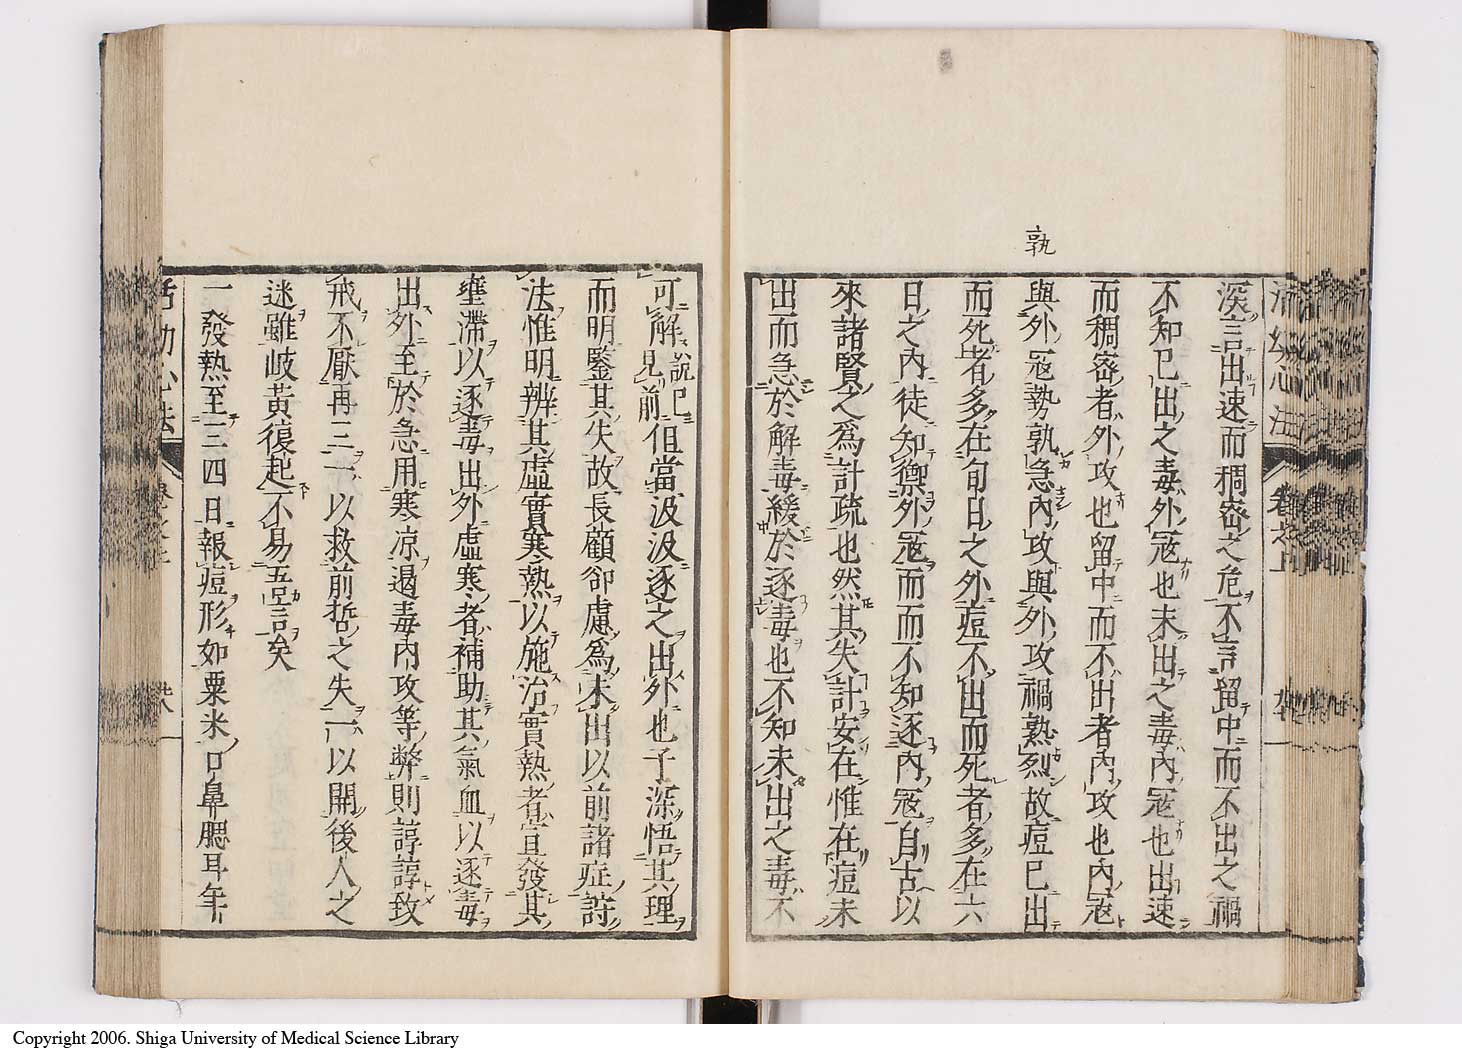 孰
深言出速而稠密之危不言留中而不出之禍
不知已出之毒外寇也未出之毒內寇也出速
而稠密者外攻也留中而不出者內攻也內寇
與外寇勢孰急內攻與外攻禍熟烈故痘已出
而死者多在旬日之外痘不出而死者多在六
日之內徒知禦外寇而而不知逐內寇自古以
來諸賢之為計疏也然其失計安在惟在痘未
出而急於解毒緩於逐毒也不知未出之毒不
可解說見前已但當汲汲逐之出外也予深悟其理
而明鑒其失故長顧卻慮為未出以前諸症詩
法惟明辨其虛實寒熱以施治實熱者宜發其
壅滯以逐毒出外虛寒者補助其氣血以逐毒
出外至於急用寒凉遏毒內攻等弊則諄諄致
戒不厭再三一以救前哲之失一以開後人之
迷雖岐黃復起不易吾言矣
一發熱至三四日報痘形如粟米口鼻腮耳年
活幼心法
Copyright 2006. Shiga University of Medical Science Library